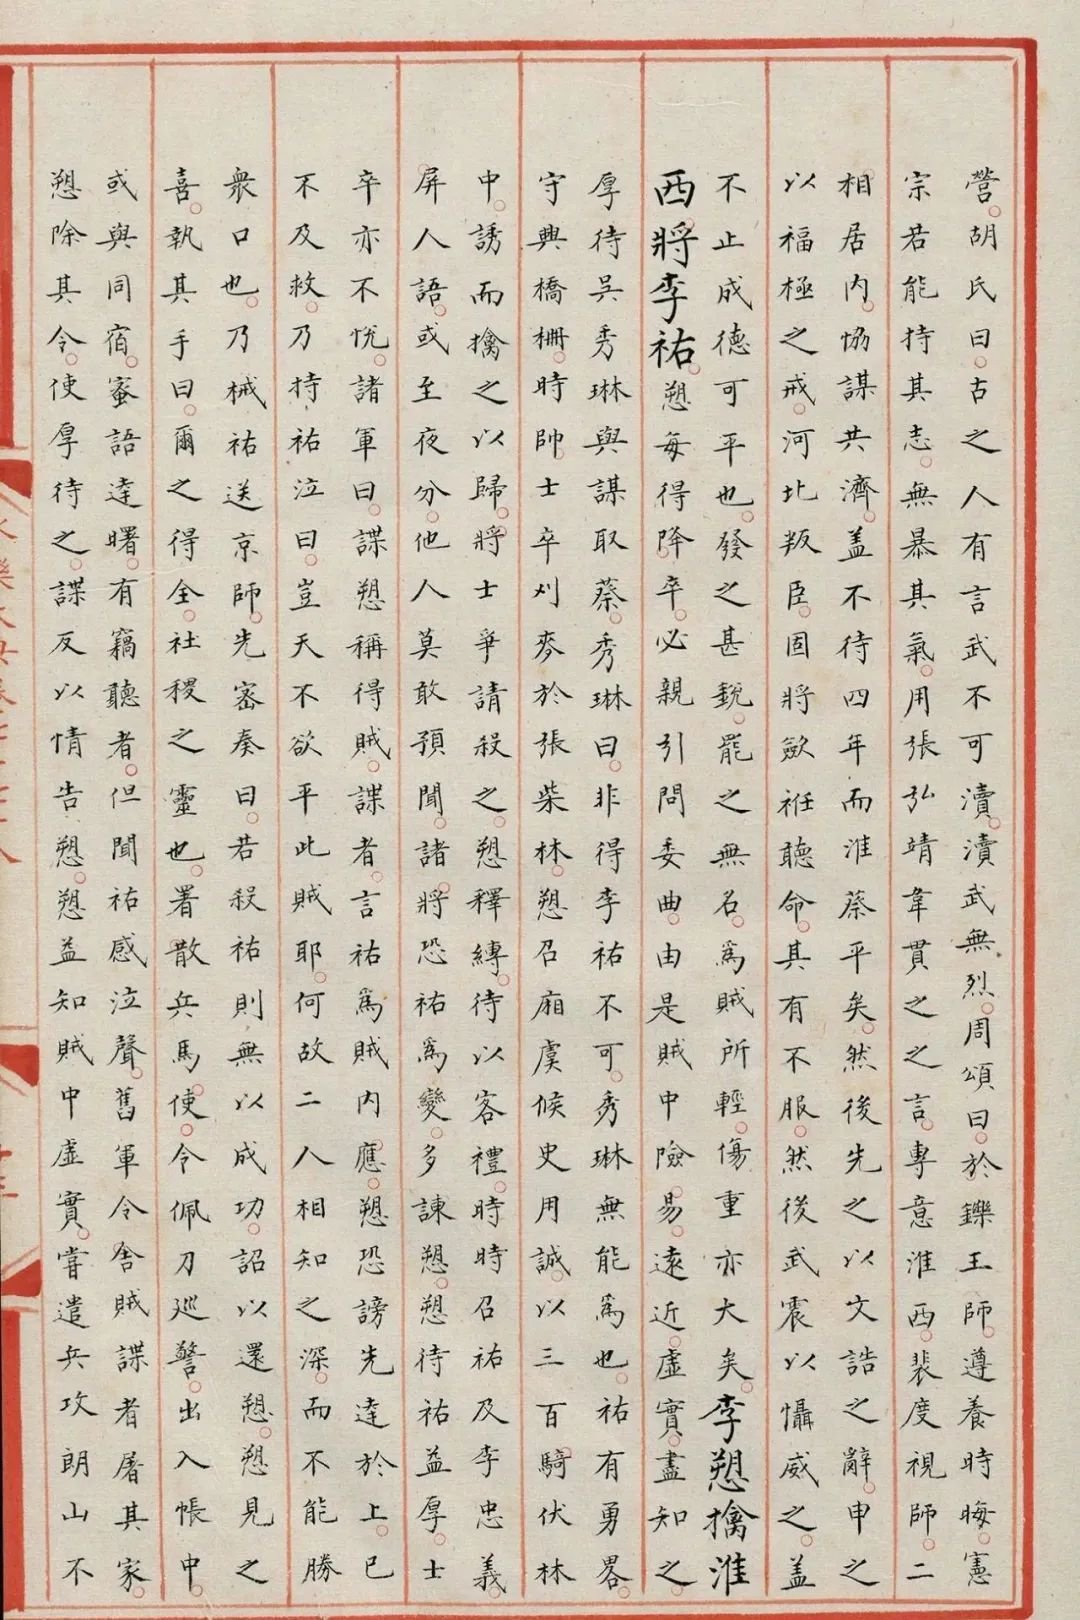 營。胡氏曰。古之人有言武不可瀆。瀆武無烈。周頌曰。於鑠王師。遵養時晦。憲
宗若能持其志。無暴其氣。用張弘靖韋貫之之言。專意淮西。裴度視師。二
相居內。協謀共濟。盖不待四年而淮蔡平矣。然後先之以文誥之辭。申之
以福極之戒。河北叛臣。固將歛袵聽命。其有不服。然後武震以懾威之。盖
不止成德可平也。發之甚銳。罷之無名。爲賊所輕。傷重亦大矣。李愬擒淮
西將李祐。愬每得降卒。必親引問委曲。由是賊中險易。遠近。虛實。盡知之。
厚待吳秀琳與謀取蔡。秀琳曰。非得李祐不可。秀琳無能爲也。祐有勇畧。
守興橋柵。時帥士卒刈麥於張柴林。愬召廂虞候史用誠。以三百騎伏林
中。誘而擒之以歸。將士爭請殺之。愬釋縛。待以客禮。時時召祐及李忠義。
屏人語。或至夜分。他人莫敢預聞。諸將恐祐爲變。多諫愬。愬待祐益厚。士
卒亦不悅。諸軍曰。諜愬稱得賊。諜者。言祐爲賊內應。愬恐謗先達於上。已
不及救。乃持祐泣曰。豈天不欲平此賊耶。何故二人相知之深。而不能勝
衆口也。乃械祐送京師。先密奏曰。若殺祐則無以成功。詔以還愬。愬見之
喜。執其手曰。爾之得全。社稷之靈也。署散兵馬使。令佩刀巡警。出入帳中。
或與同宿。蜜語達曙。有竊聽者。但聞祐感泣聲。舊軍令舍賊諜者屠其家。
愬除其令。使厚待之。諜反以情告愬。愬益知賊中虛實。嘗遣兵攻朗山不